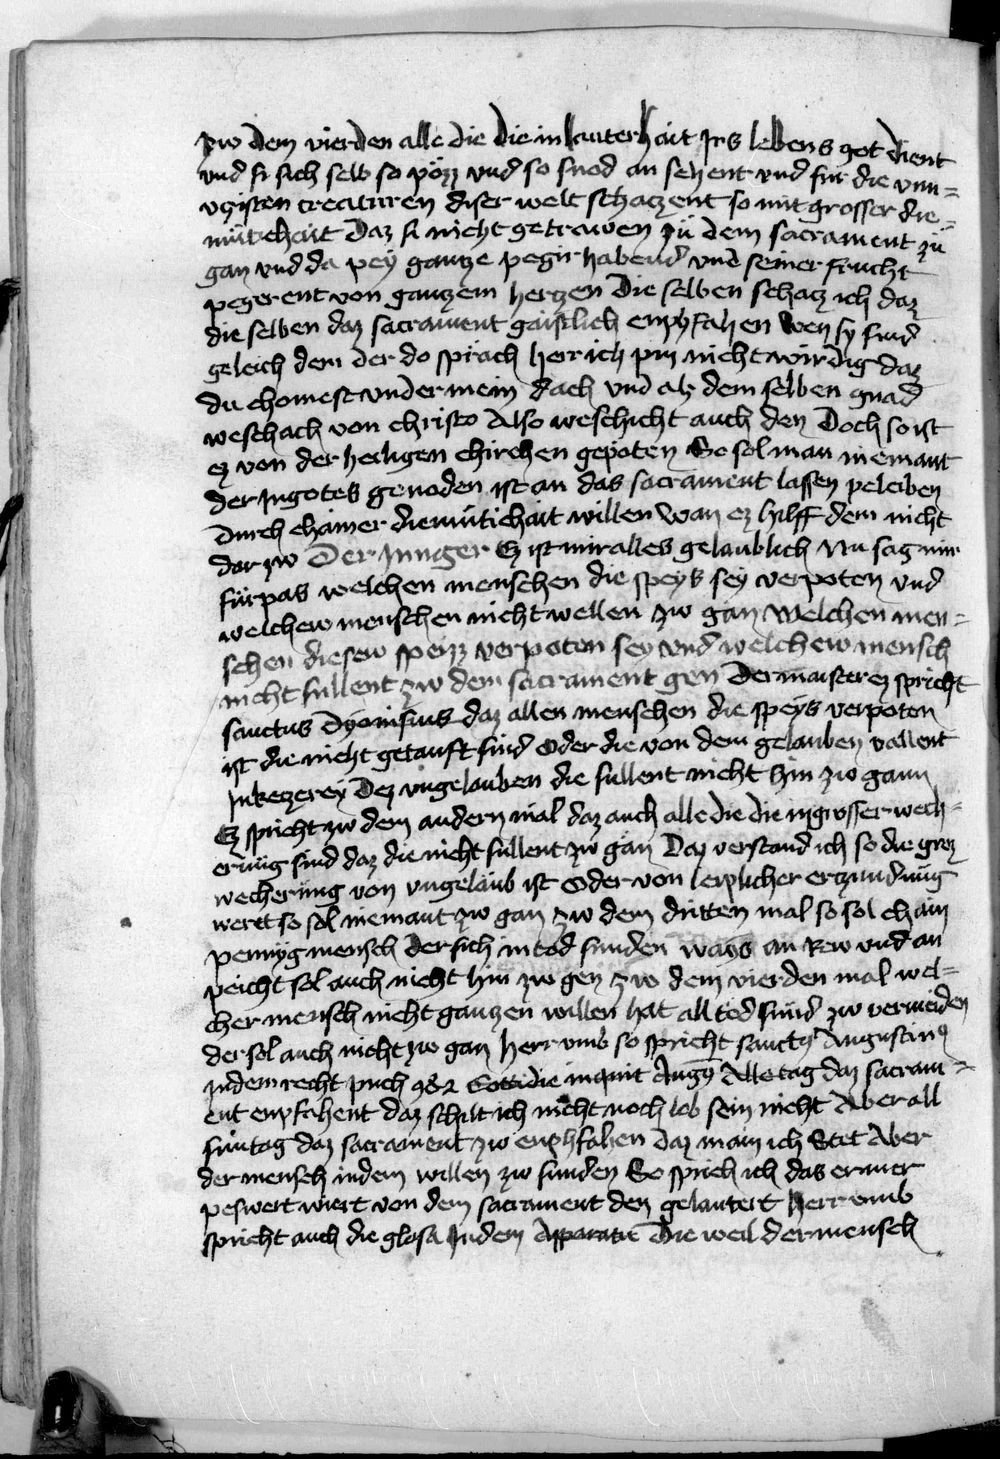 zw dem vierden alle die die in lauterhait irs lebens got dient
und si sich selb so pözz und so snod an sehent und fur die unn=
uczisten creaturen diser welt schaczent so mit grosser die=
mütichait daz si nicht getrawen zü dem sacrament zü
gan und da pey gantze pegir habend und seiner frucht
pegerent von gantzem hertzen Die selben schacz ich daz
die selben daz sacrament gaistlich enphfahen wen sy sind
geleich dem der do sprach herr ich pin nicht wirdig daz
du chomest under mein dach und als dem selben gnad
weschach von christo Also weschicht auch den Doch so ist
ez von der heiligen chirchen gepoten So sol man niemant
der in gotes genoden ist an das sacrament lassen peleiben
durch chainer diemütichait willen Wan ez hilff dem nicht
dar zw Der Junger Ez ist mir alles gelaublich Nu sag mir
fürpas welchen menschen die speys sey verpoten und
welchew menschen nicht wellen zw gan Welchen men=
schen diesew speizz verpoten sey und welchew mensch
nicht sullent zw dem sacrament gen Der maister ez spricht
sanctus Dyonisius daz allen menschen die speys verpoten
ist die nicht getauft sind Oder die von dem gelauben vallent
In keczerey Dez ungelauben die sullent nicht hin zw gann
Ez spricht zw dem andern mal daz auch alle die die in grosser wech=
erung sind daz die nicht sullent zw gan Daz verstand ich so die groz
wecherung von ungelaub ist Oder von leiplicher erczundung
wert so sol niemant zw gan zw dem dritten mal so sol chain
pennyg mensch der sich in tod sunden wais an Rew und an
peicht sol auch nicht hin zw gen zw dem vierden mal wel=
cher mensch nicht gantzen willen hat all tod sund zw vermeiden
der sol auch nicht zw gan herr umb so spricht sanctus Augustinus
In dem recht puch Cottidie inquit Augus Alle tag daz sacram=
ent enpfahent daz schilt ich nicht noch lob sein nicht Aber all
suntag daz sacrament zw enphfahen daz main ich Stet Aber
der mensch in dem willen zw sunden So sprich ich das er mer
peswert wiert von dem sacrament den gelautert herr umb
spricht auch die glosa In dem Apparatu Die weil der mensch